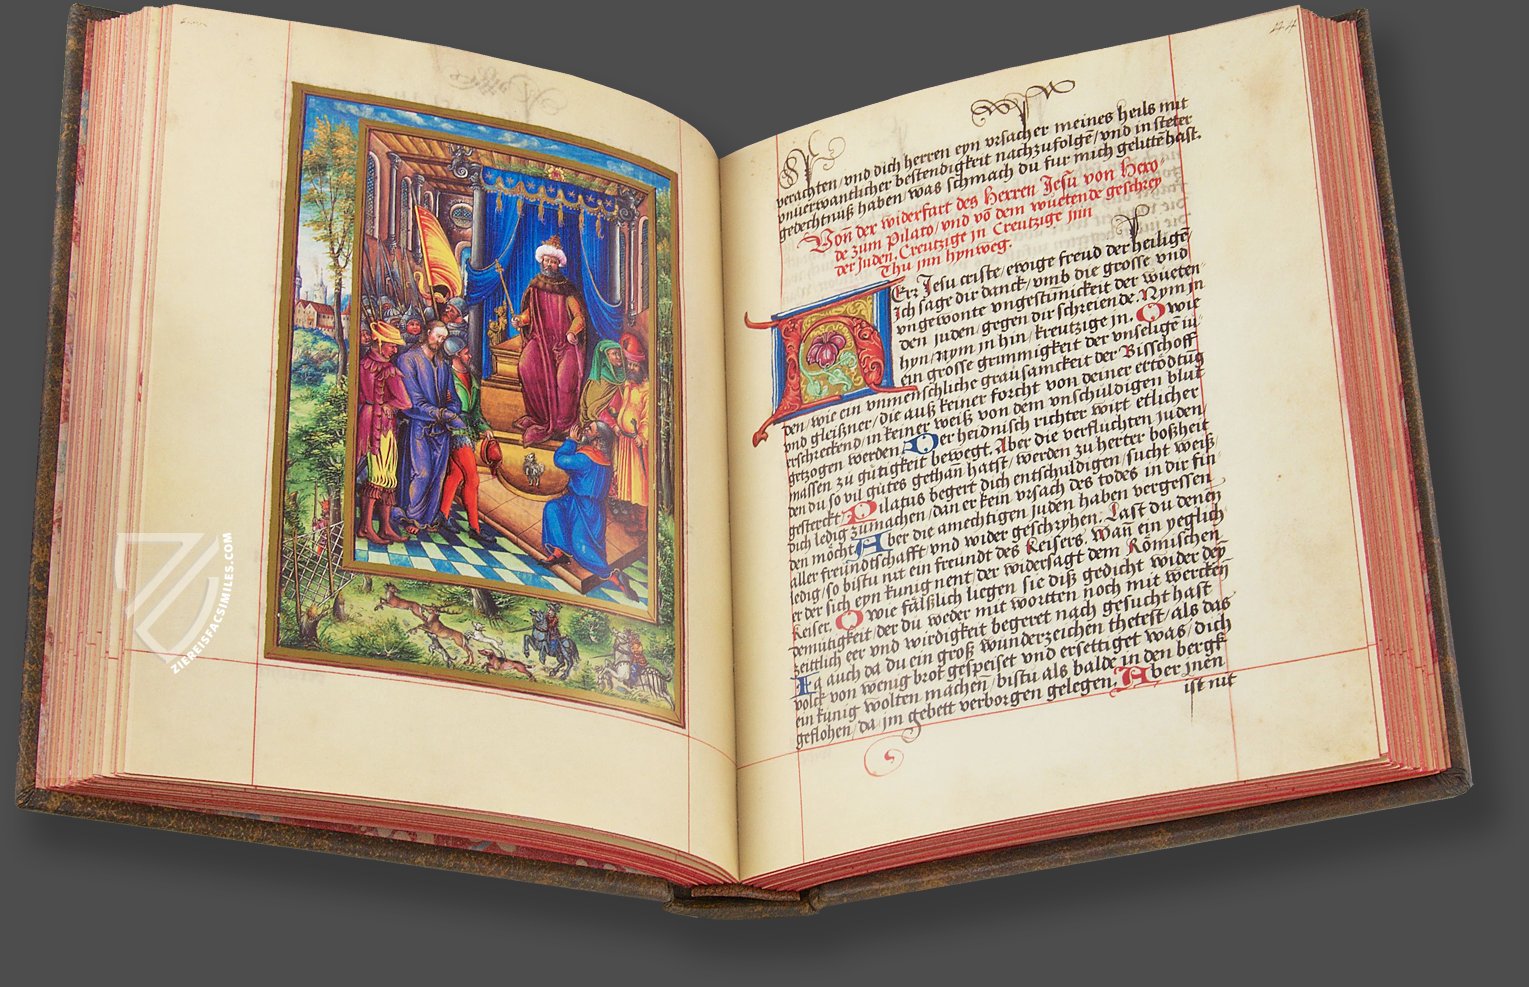 verachten/und dich herren eyn ursacher meines heils mit
unuerwantlicher bestendigkeit nachzufolgē/und in steter
gedechtnuß haben/was schmach du fur mich gelittē hast.
Von der widerfart des Herren Jesu von Hero/
de zum Pilato/und vō dem wuetende geschrey
der Juden, Creutzige jn Creutzige jnn
Thu jnn hynweg.
Err Jesu criste/ewige freud der heiligē/
Ich sage dir danck/umb die grosse und
ungewonte ungestümickeit der wueten/
den juden/gegen dir schreiende. Nym jn
hyn/nym jn hin/kreutzige jn. O wie
ein grosse grummigkeit der unselige iu/
den/wie ein unmenschliche grausamckeit der Bisschoff
und gleißner/die auß keiner forcht von deiner ertödtūg
erschreckend/in keiner weiß von dem unschuldigen blut
getzogen werden. Der heidnisch richter wirt etlicher
massen zu gütigkeit bewegt. Aber die verfluchten juden
den du so vil gutes gethan hatst/werden zu herter boßheit
gesterckt. Pilatus begert dich entschuldigen/sucht weiß/
dich ledig zumachen/dan er kein ursach des todes in dir fin/
den möcht. Aber die amechtigen juden haben vergessen
aller freundtschafft/und wider geschryhen. Last du denen
ledig/so bistu nit ein freundt des keisers. Wan ein yeglich
er der sich eyn kunig nent/der widersagt dem Römischen
keiser. O wie fälßlich liegen sie diß gedicht wider dey
demütigkeit/der du weder mit wortten noch mit wercken
zeittlich eer und wirdigkeit begeret nach gesucht hast
Ja auch da du ein groß wunderzeichen thetest/als das
volck von wenig brot gespeiset und ersettiget was/dich
ein kunig wolten machen/bistu als balde in den bergk
geflohen/da jm gebett verborgen gelegen. Aber jnen
ist nit
ZIEREISFACSIMILES.COM